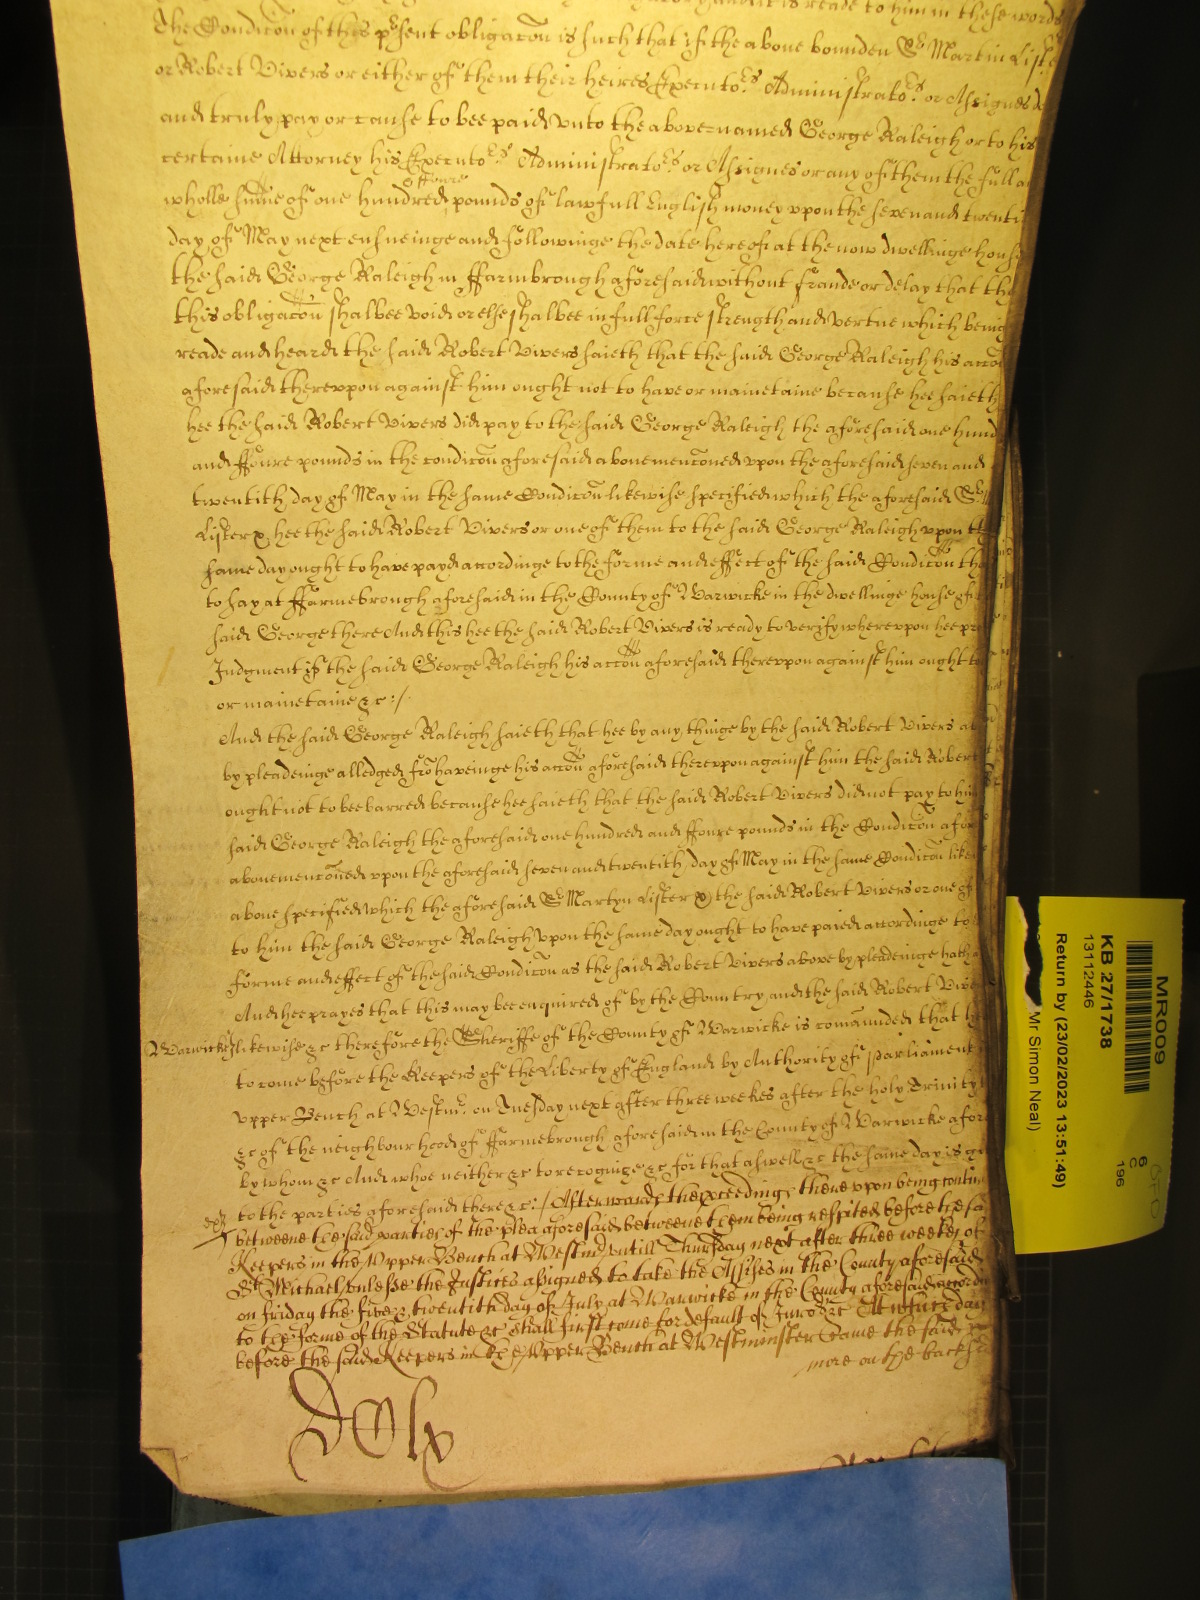 reade to him in these words
The Condicōn of this pʳsent obligacōn is such that if the above bounden Sʳ Martin Liste
or Robert Vivers or either of them their heires Executoʳˢ Administratoʳˢ or Assignes do
and truly pay or cause to bee paid vnto the above named George Raleigh or to his
certaine Attorney his Executoʳˢ Administratoʳˢ or Assignes or any of them the full a
& ffoure
wholle sume of one hundred pounds of lawfull English money vpon the seven and twenti
day of May next ensueinge and followinge the date hereof at the now dwellinge hous
the said George Raleigh in ffarmbrough aforesaid without fraude or delay that the
this obligacōn shalbee void or else shalbee in full force strength and vertue which being
reade and heard the said Robert Vivers saieth that the said George Raleigh his accō
aforesaid therevpon against him ought not to have or mainetaine because hee saieth
hee the said Robert Vivers did pay to the said George Raleigh the aforesaid one hund
and ffoure pounds in the condicōn aforesaid abovemencōned vpon the aforesaid seven and
twentith day of May in the same Condicōn likewise specified which the aforesaid Sʳ
Lister & hee the said Robert Vivers or one of them to the said George Raleigh vpon th
same day ought to have payd accordinge to the forme and effect of the said Condicōn tha
to say at ffarmebrough aforesaid in the County of Warwicke in the dwellinge house of
said George there And this hee the said Robert Vivers is ready to verify wherevpon hee pr
Judgment if the said George Raleigh his accōn aforesaid therevpon against him ought to
or mainetaine &c :/
And the said George Raleigh saieth that hee by any thinge by the said Robert Vivers ab
by pleadeinge alledged frō haveinge his accōn aforesaid therevpon against him the said Robert
ought not to bee barred because hee saieth that the said Robert Vivers did not pay to him
said George Raleigh the aforesaid one hundred and ffoure pounds in the Condicōn afor
abovemencōned vpon the aforesaid seven and twentith day of May in the same Condicōn like
above specified which the aforesaid Sʳ Martyn Lister & the said Robert Vivers or one of
to him the said George Raleigh vpon the same day ought to have paied accordinge to
forme and effect of the said Condicōn as the said Robert Vivers above by pleadeinge hath a
And hee prayes that this may bee enquired of by the Country and the said Robert Vive
Warwicke likewise &c therefore the Sheriffe of the County of Warwicke is comaunded that h
to come before the Keepers of the Liberty of England by Authority of Parliament
vpper Bench at Westmʳ. on Tuesday next after three weekes after the holy Trinity
&c of the neighbourhood of ffarmebrough aforesaid in the County of Warwicke afor
by whom &c And whoe neither &c to recognize &c for that aswell &c the same day is gi
to the parties aforesaid there &c :/ Afterwards the proceedings there vpon being contin
betweene the said parties of the plea aforesaid betweene them being respited before the sa
Keepers in the Vpper Bench at Westmʳ vntill Thursday next after three weekes of
Sᵗ Michael vnlesse the Justices assigned to take the Assises in the County aforesaid
on friday the five & twentith day of July at Warwicke in the County aforesaid accordi
to the forme of the Statute &c shall first come for default of Jurors &c At which day
before the said Keepers in the Vpper Bench at Westminster Came the said
more on the backs
MR009
KB 27/1738
13112446
Return by (23/02/2023 13:51:49)
Mr Simon Neal)
6
C
196